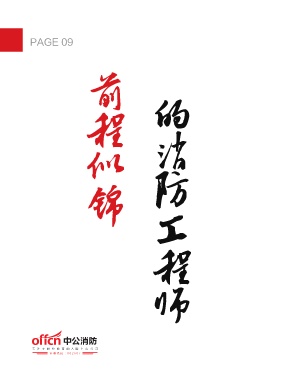 PAGE 09
前程似锦
的消防工程师
offcn 中公消防